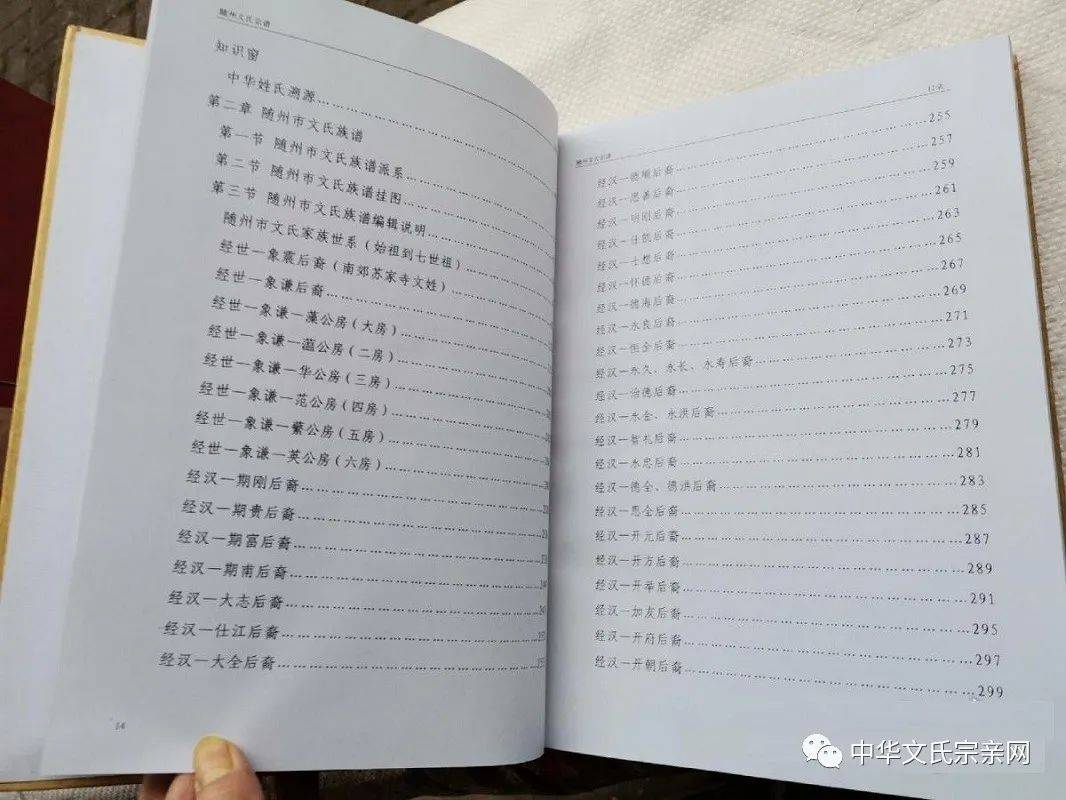 随州文氏宗谱
知识窗
中华姓氏溯源……
第二章 随州市文氏族谱
第一节 随州市文氏族谱派系……
第二节 随州市文氏族谱挂图……
第三节 随州市文氏族谱编辑说明……
随州市文氏家族世系(始祖到七世祖)……
经世一象震后裔(南郊苏家寺文姓)……
经世一象谦后裔……
经世一象谦一藻公房(大房)……
经世一象谦一蕰公房(二房)……
经世一象谦一华公房(三房)……
经世一象谦一范公房(四房)……
经世一象谦一蘩公房(五房)……
经世一象谦一英公房(六房)……
经汉一期刚后裔……
经汉一期贵后裔……
经汉一期富后裔……
经汉一期南后裔……
经汉一大志后裔……
经汉一仕江后裔……
经汉一大全后裔……
14
随州文氏宗谱
目录
经汉一德顺后裔……255
经汉一愿善后裔……257
经汉一明刚后裔……259
经汉一仕凯后裔……261
经汉一士想后裔……263
经汉一怀德后裔……265
经汉一德海后裔……267
经汉一永良后裔……269
经汉一恒全后裔……271
经汉一永久、永长、永寿后裔……273
经汉一治德后裔……275
经汉一永金、永洪后裔……277
经汉一智礼后裔……279
经汉一永忠后裔……281
经汉一德全、德洪后裔……283
经汉一思全后裔……285
经汉一开元后裔……287
经汉一开方后裔……289
经汉一开举后裔……291
经汉一加友后裔……295
经汉一开府后裔……297
经汉一开朝后裔……299
中华文氏宗亲网